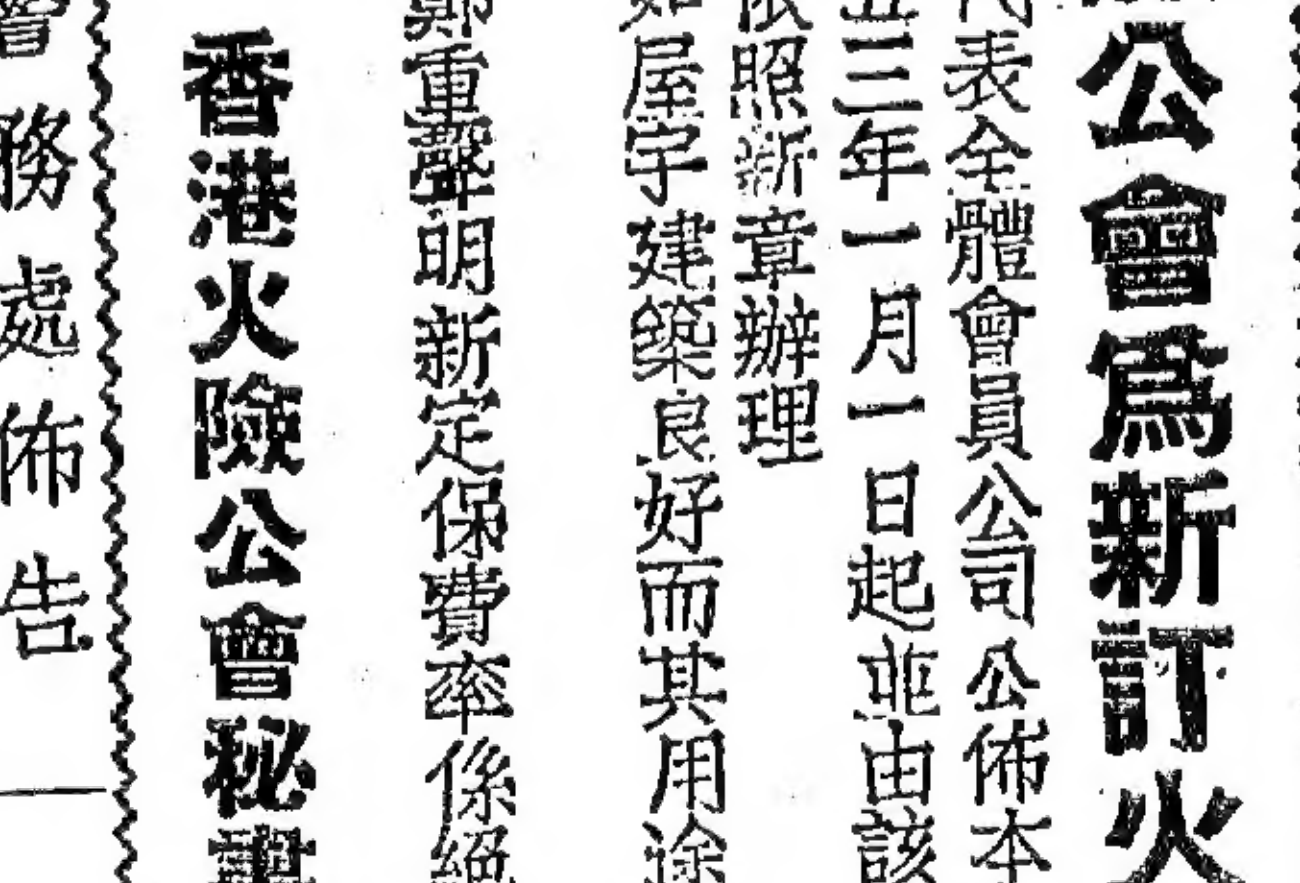 公會爲新訂火
表全體會員公司公佈本
三年一月一日起並由該
照新章辦理
屋宇建築良好而其用途
鄭重聲明新定保費率係絕
香港火險公會秘書
警務處佈告